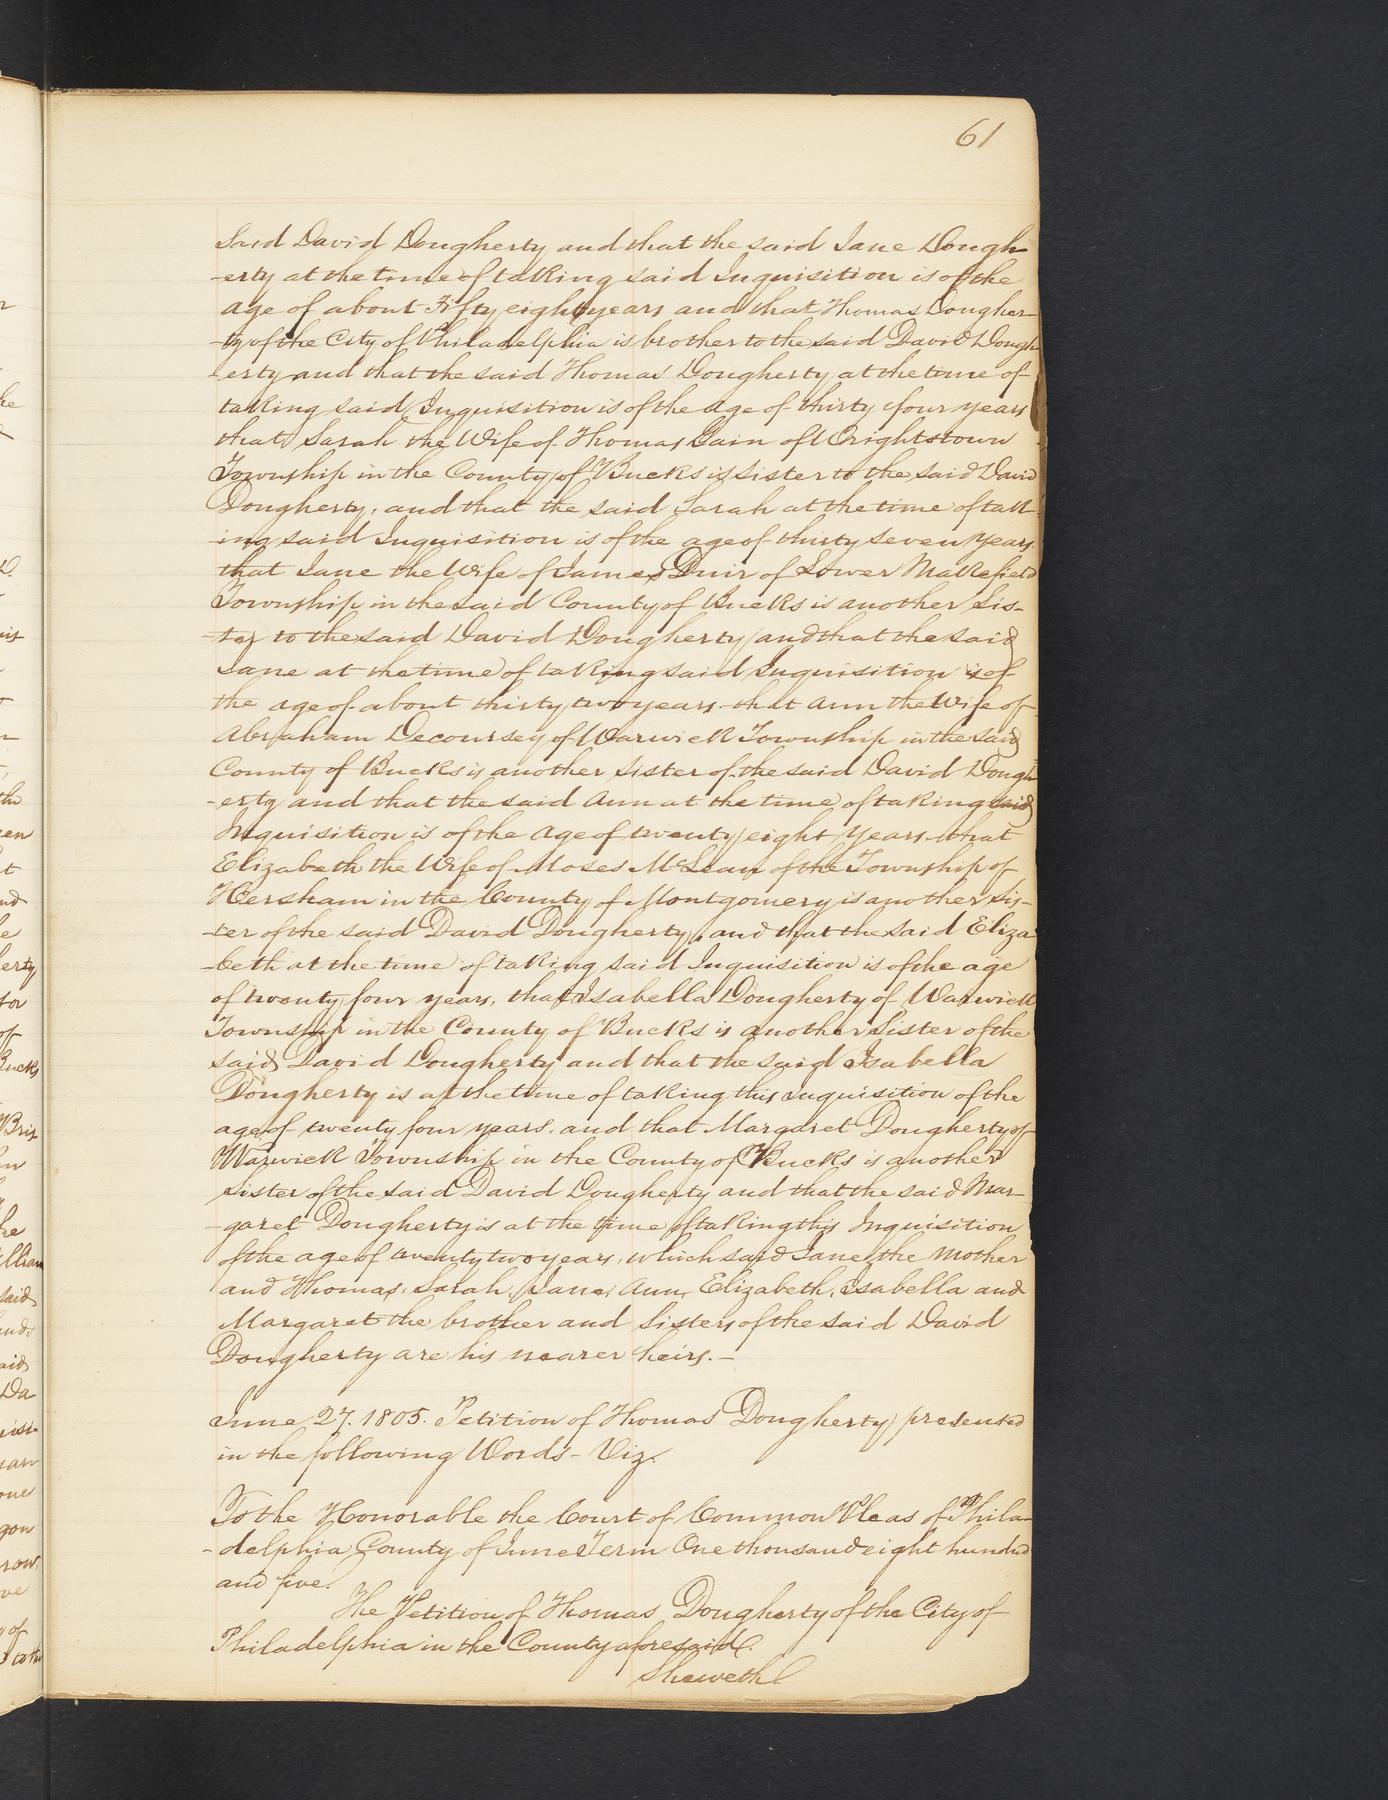 61
Said David Dougherty and that the said Jane Dough-
-erty at the time of taking said Inquisition is of the
age of about Fifty eight years and that Thomas Dougher-
-ty of the City of Philadelphia is brother to the said David Dough
-erty and that the said Thomas Dougherty at the time of
taking said Inquisition is of the age of thirty four years
that Sarah the Wife of Thomas Gain of Wrightstown
Township in the County of Bucks is Sister to the said David
Dougherty, and that the said Sarah at the time of tak-
-ing said Inquisition is of the age of thirty seven years.
that Jane the Wife of James Duir of Lower Makefield
Township in the said County of Bucks is another Sis-
-ter to the said David Dougherty and that the said
Jane at the time of taking said Inquisition is of
the age of about thirty two years. that Ann the Wife of
Abraham Decoursey of Warwick Township in the said
County of Bucks is another sister of the said David Dough
-erty and that the said Ann at the time of taking said
Inquisition is of the age of twenty eight years. that
Elizabeth the Wife of Moses McLean of the Township of
Hersham in the County of Montgomery is another Sis-
-ter of the said David Dougherty, and that the said Eliza
-beth at the time of taking said Inquisition is of the age
of twenty four years, that Isabella Dougherty of Warwick
Township in the County of Bucks is another Sister of the
said David Dougherty and that the said Isabella
Dougherty is at the time of taking this inquisition of the
age of twenty four years. and that Margaret Dougherty of
Warwick Township in the County of Bucks is another
sister of the said David Dougherty and that the said Mar-
-garet Dougherty is at the time of taking this Inquisition
of the age of twenty two years, which said Jane the Mother
and Thomas, Sarah, Jane, Ann, Elizabeth, Isabella and
Margaret the brother and Sisters of the said David
Dougherty are his nearer heirs. -
June 27. 1805. Petition of Thomas Dougherty presented
in the following Words - Viz.
To the Honorable the Court of Common Pleas of Phila-
-delphia County of June Term One thousand eight hundred
and five.
The Petition of Thomas Dougherty of the City of
Philadelphia in the County aforesaid.
Sheweth